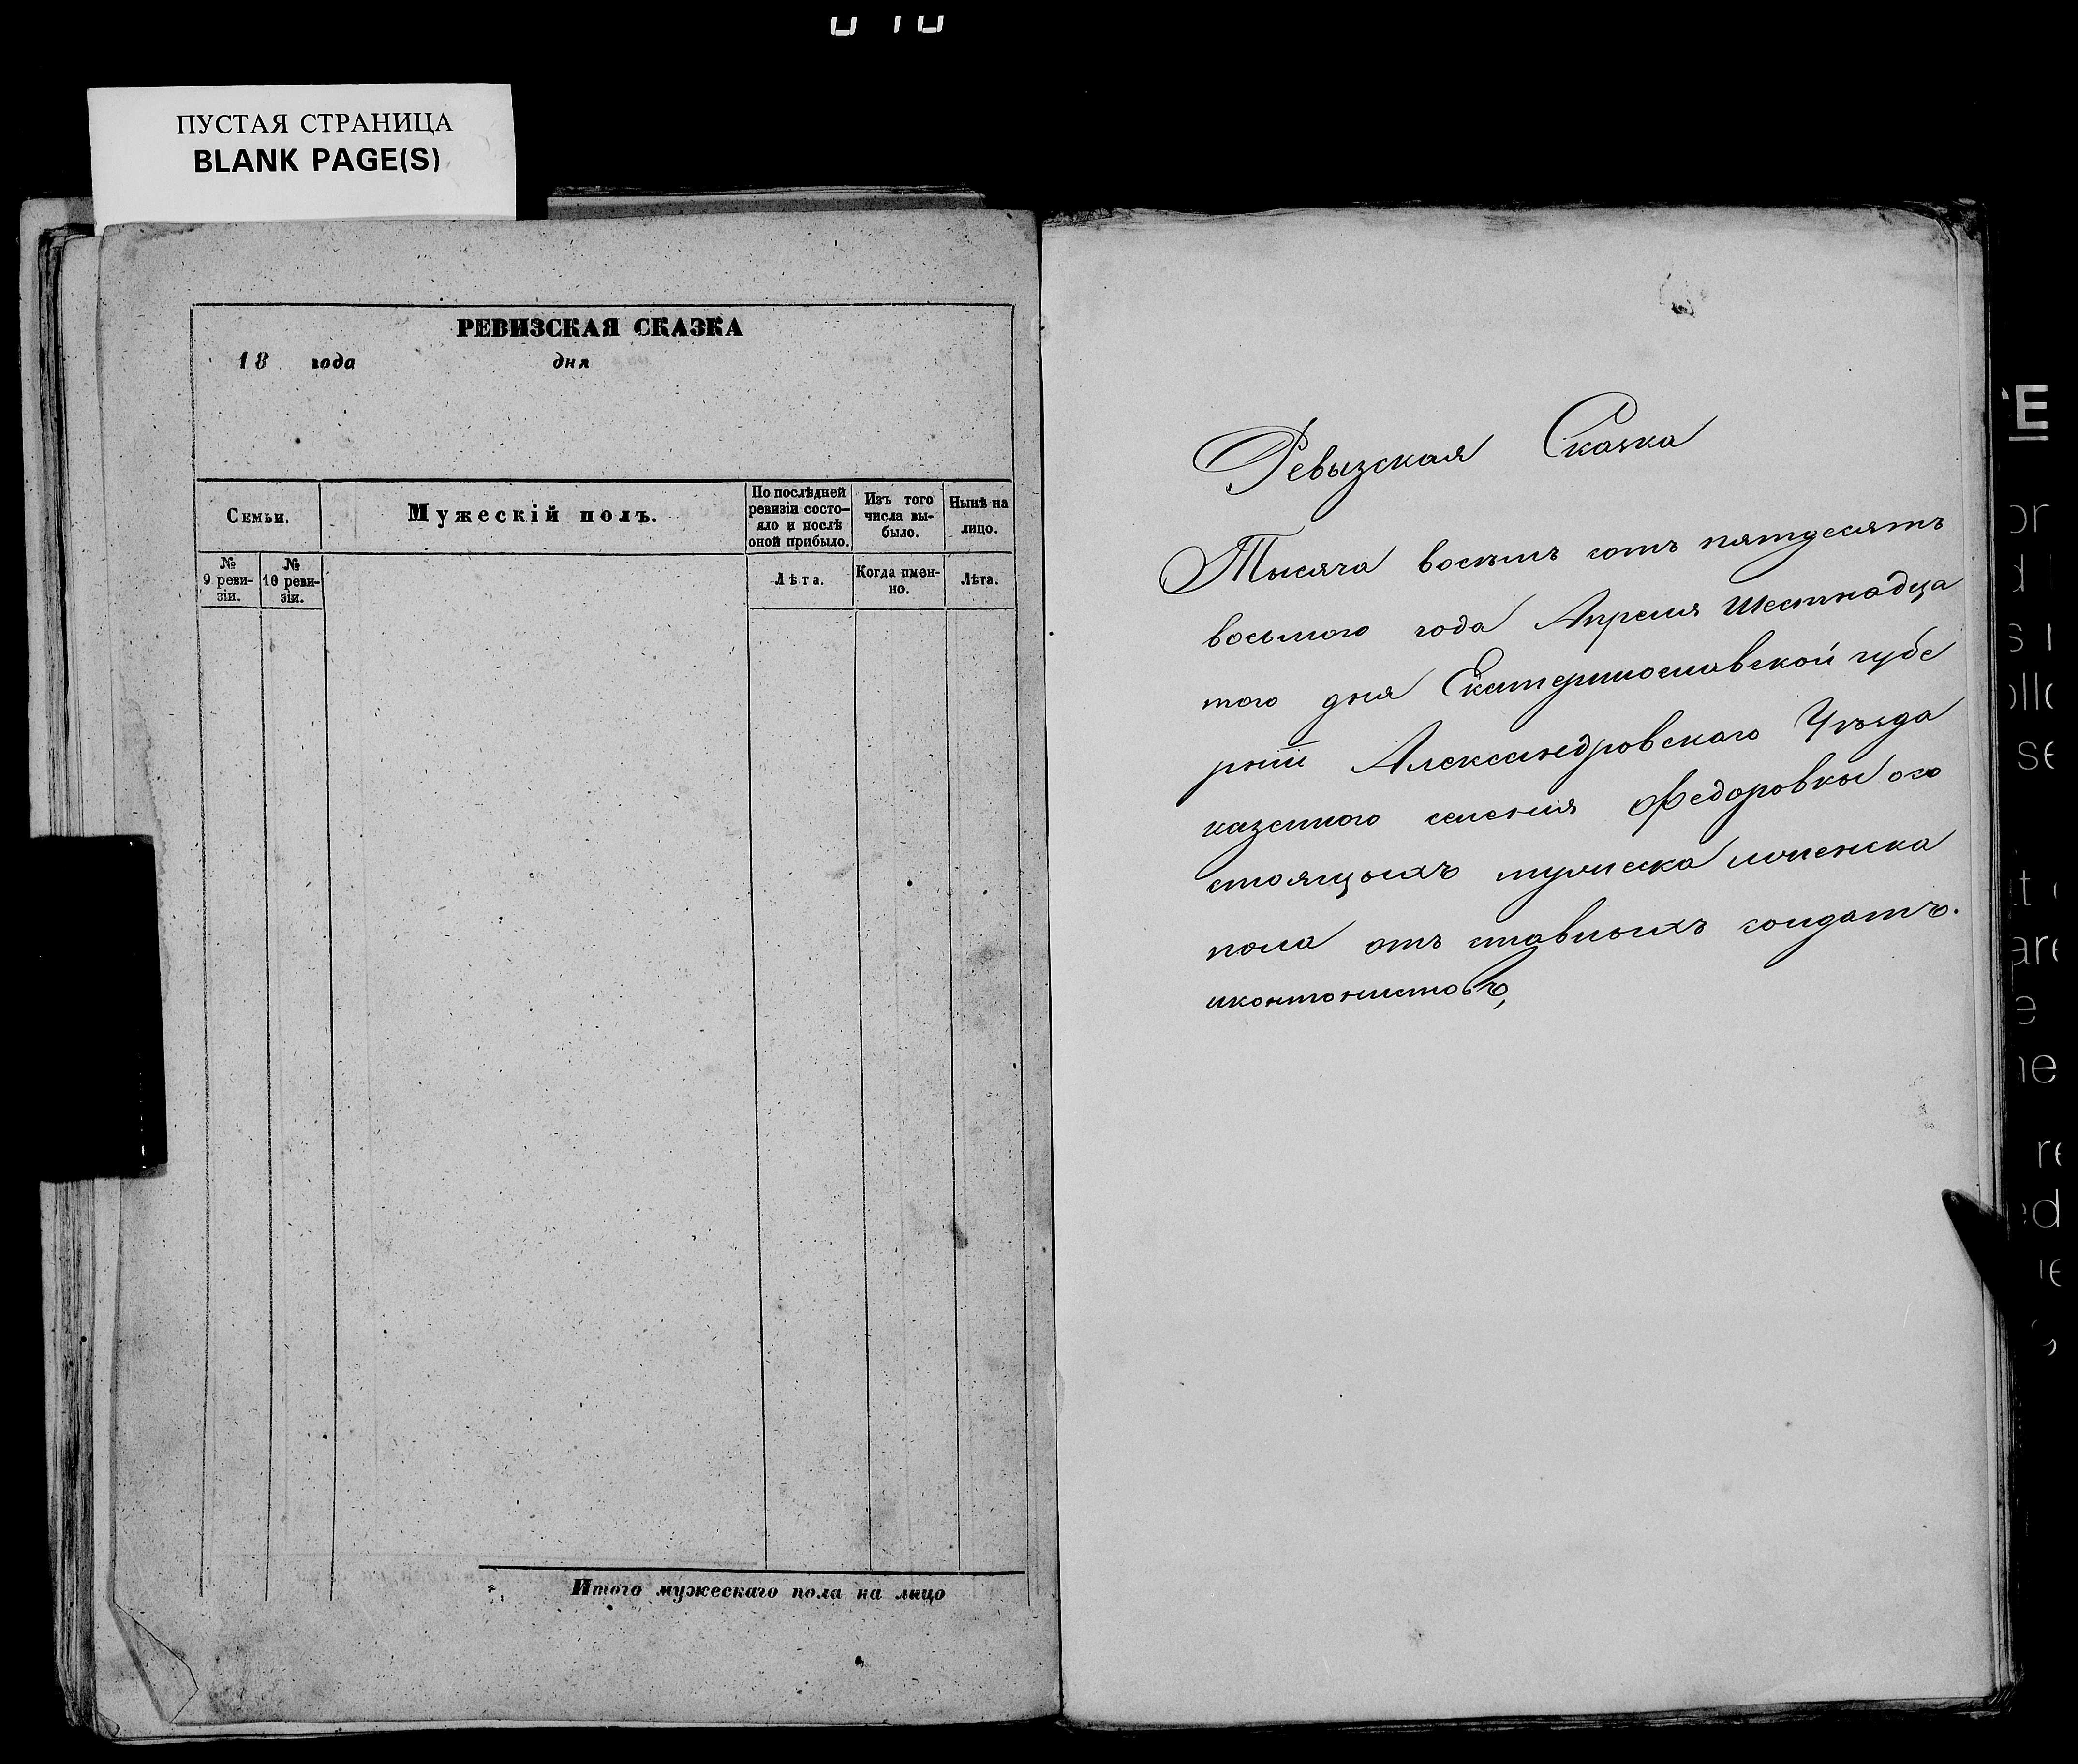 ПУСТАЯ СТРАНИЦА
BLANK PAGE(S)
РЕВИЗСКАЯ СКАЗКА
18 года дня
Семьи.
Мужескій полъ.
По послѣдней
ревизіи состо-
яло и послѣ
оной прибыло.
Изъ того
числа вы-
было.
Нынѣ на
лицо.
№
9 реви-
зіи.
№
10 реви-
зіи.
Лѣта.
Когда имен-
но.
Лѣта.
Итого мужескаго пола на лицо
Ревызская Сказка
Тысяча восемъ сотъ пятдесятъ
восьмого года Апреля Шестнадца
того дня Екатеринославской губе
рніи Александровскаго Уѣзда
казенного селенія Федоровкы осо
стоящыихъ мужеска иженска
пола отъ ставныихъ солдатъ.
иконтонистовъ,